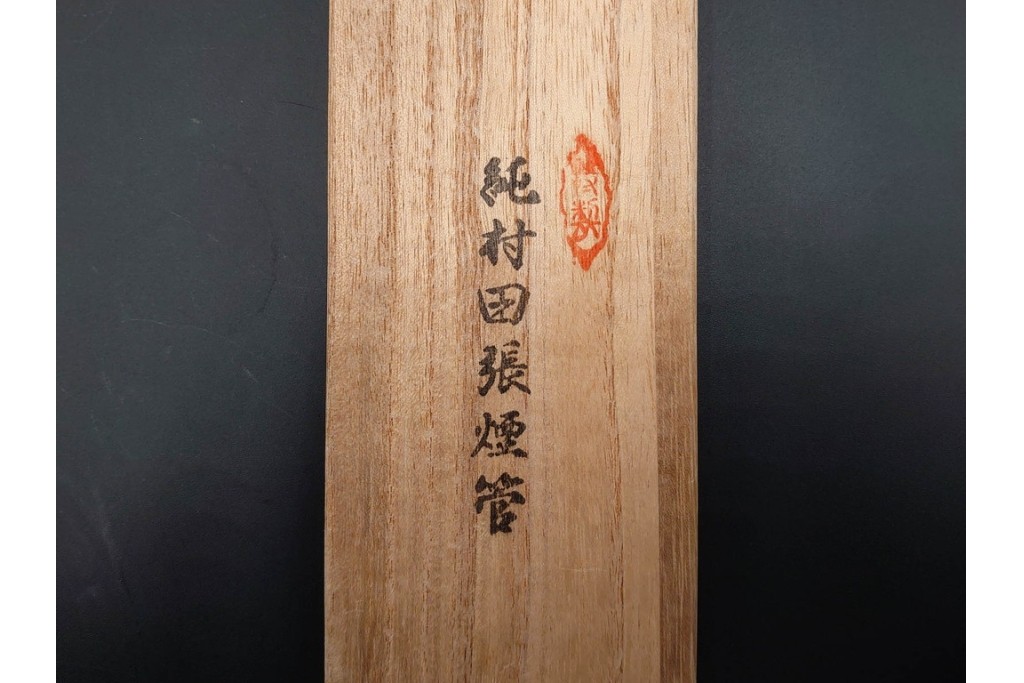 純村田張煙管